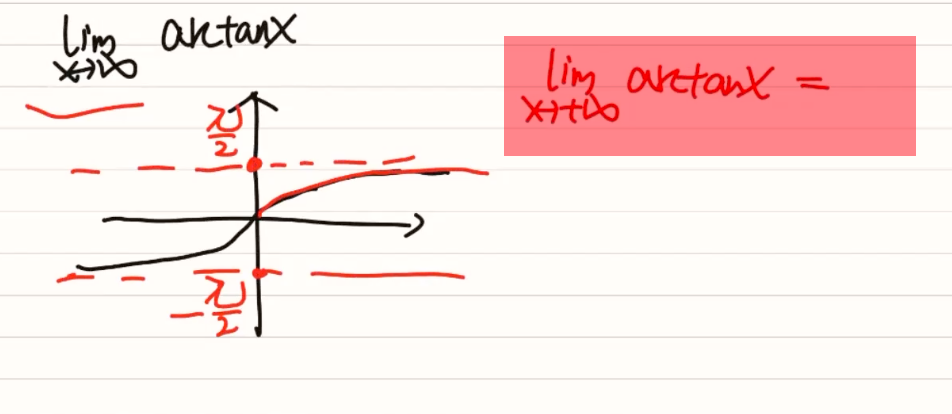 lim arctanx
x→∞
π/2
-π/2
lim arctanx =
x→+∞